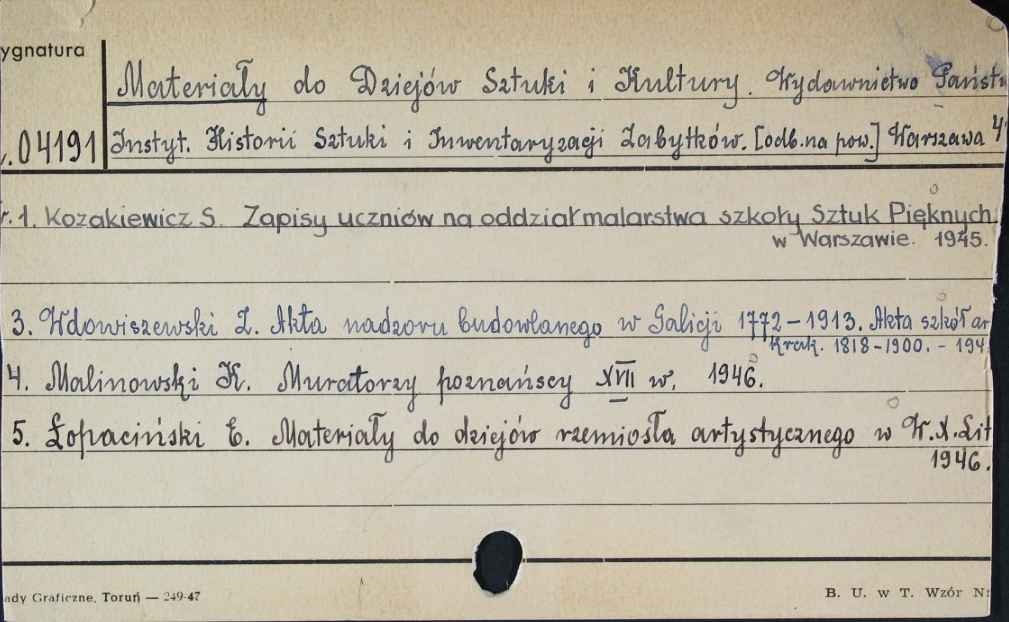 ygnatura
Materiały do Dziejów Sztuki i Kultury. Wydawnictwo Państw
04191 Instyt. Historii Sztuki i Inwentaryzacji Zabytków. [odb. na pow.] Warszawa 4
r. 1. Kozakiewicz S. Zapisy uczniów na oddział malarstwa szkoły Sztuk Pięknych
w Warszawie. 1945.
3. Wdowiszewski Z. Akta nadzoru budowlanego w Galicji 1772-1913. Akta szkół ar
Krak. 1818-1900. - 194
4. Malinowski K. Muratorzy poznańscy XVII w. 1946.
5. Łopaciński E. Materiały do dziejów rzemiosła artystycznego w W.X.Lit
1946.
ady Graficzne, Toruń — 249-47
B. U. w T. Wzór Nr